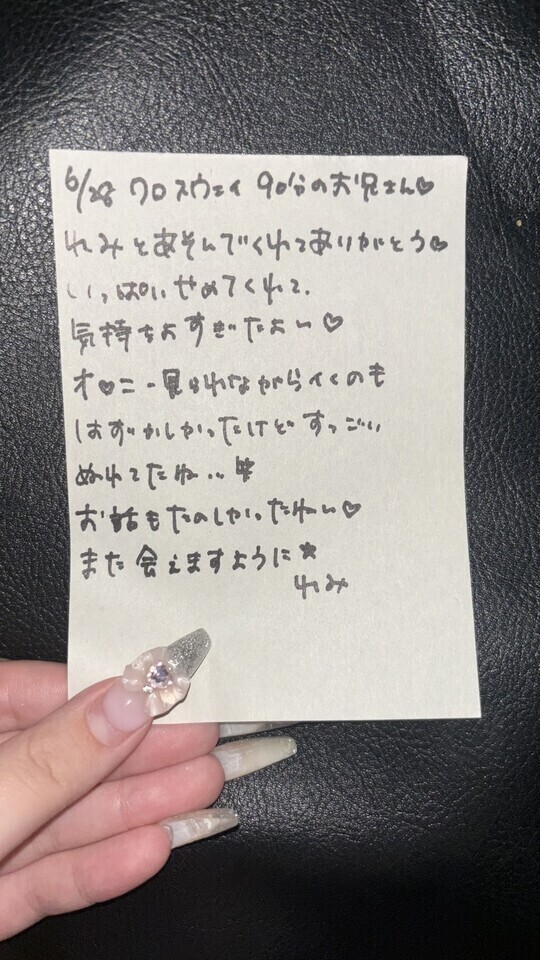 6/28 クロスウェイ 90分のお兄さん♡
れみとあそんでくれてありがとう♡
いっぱいせめてくれて、
気持ちよすぎたよい♡
オ♡ニー見られながらイくのも
はずかしかったけどすっごい
ぬれてたね‥
お話もたのしかったねい♡
また会えますように☆
れみ